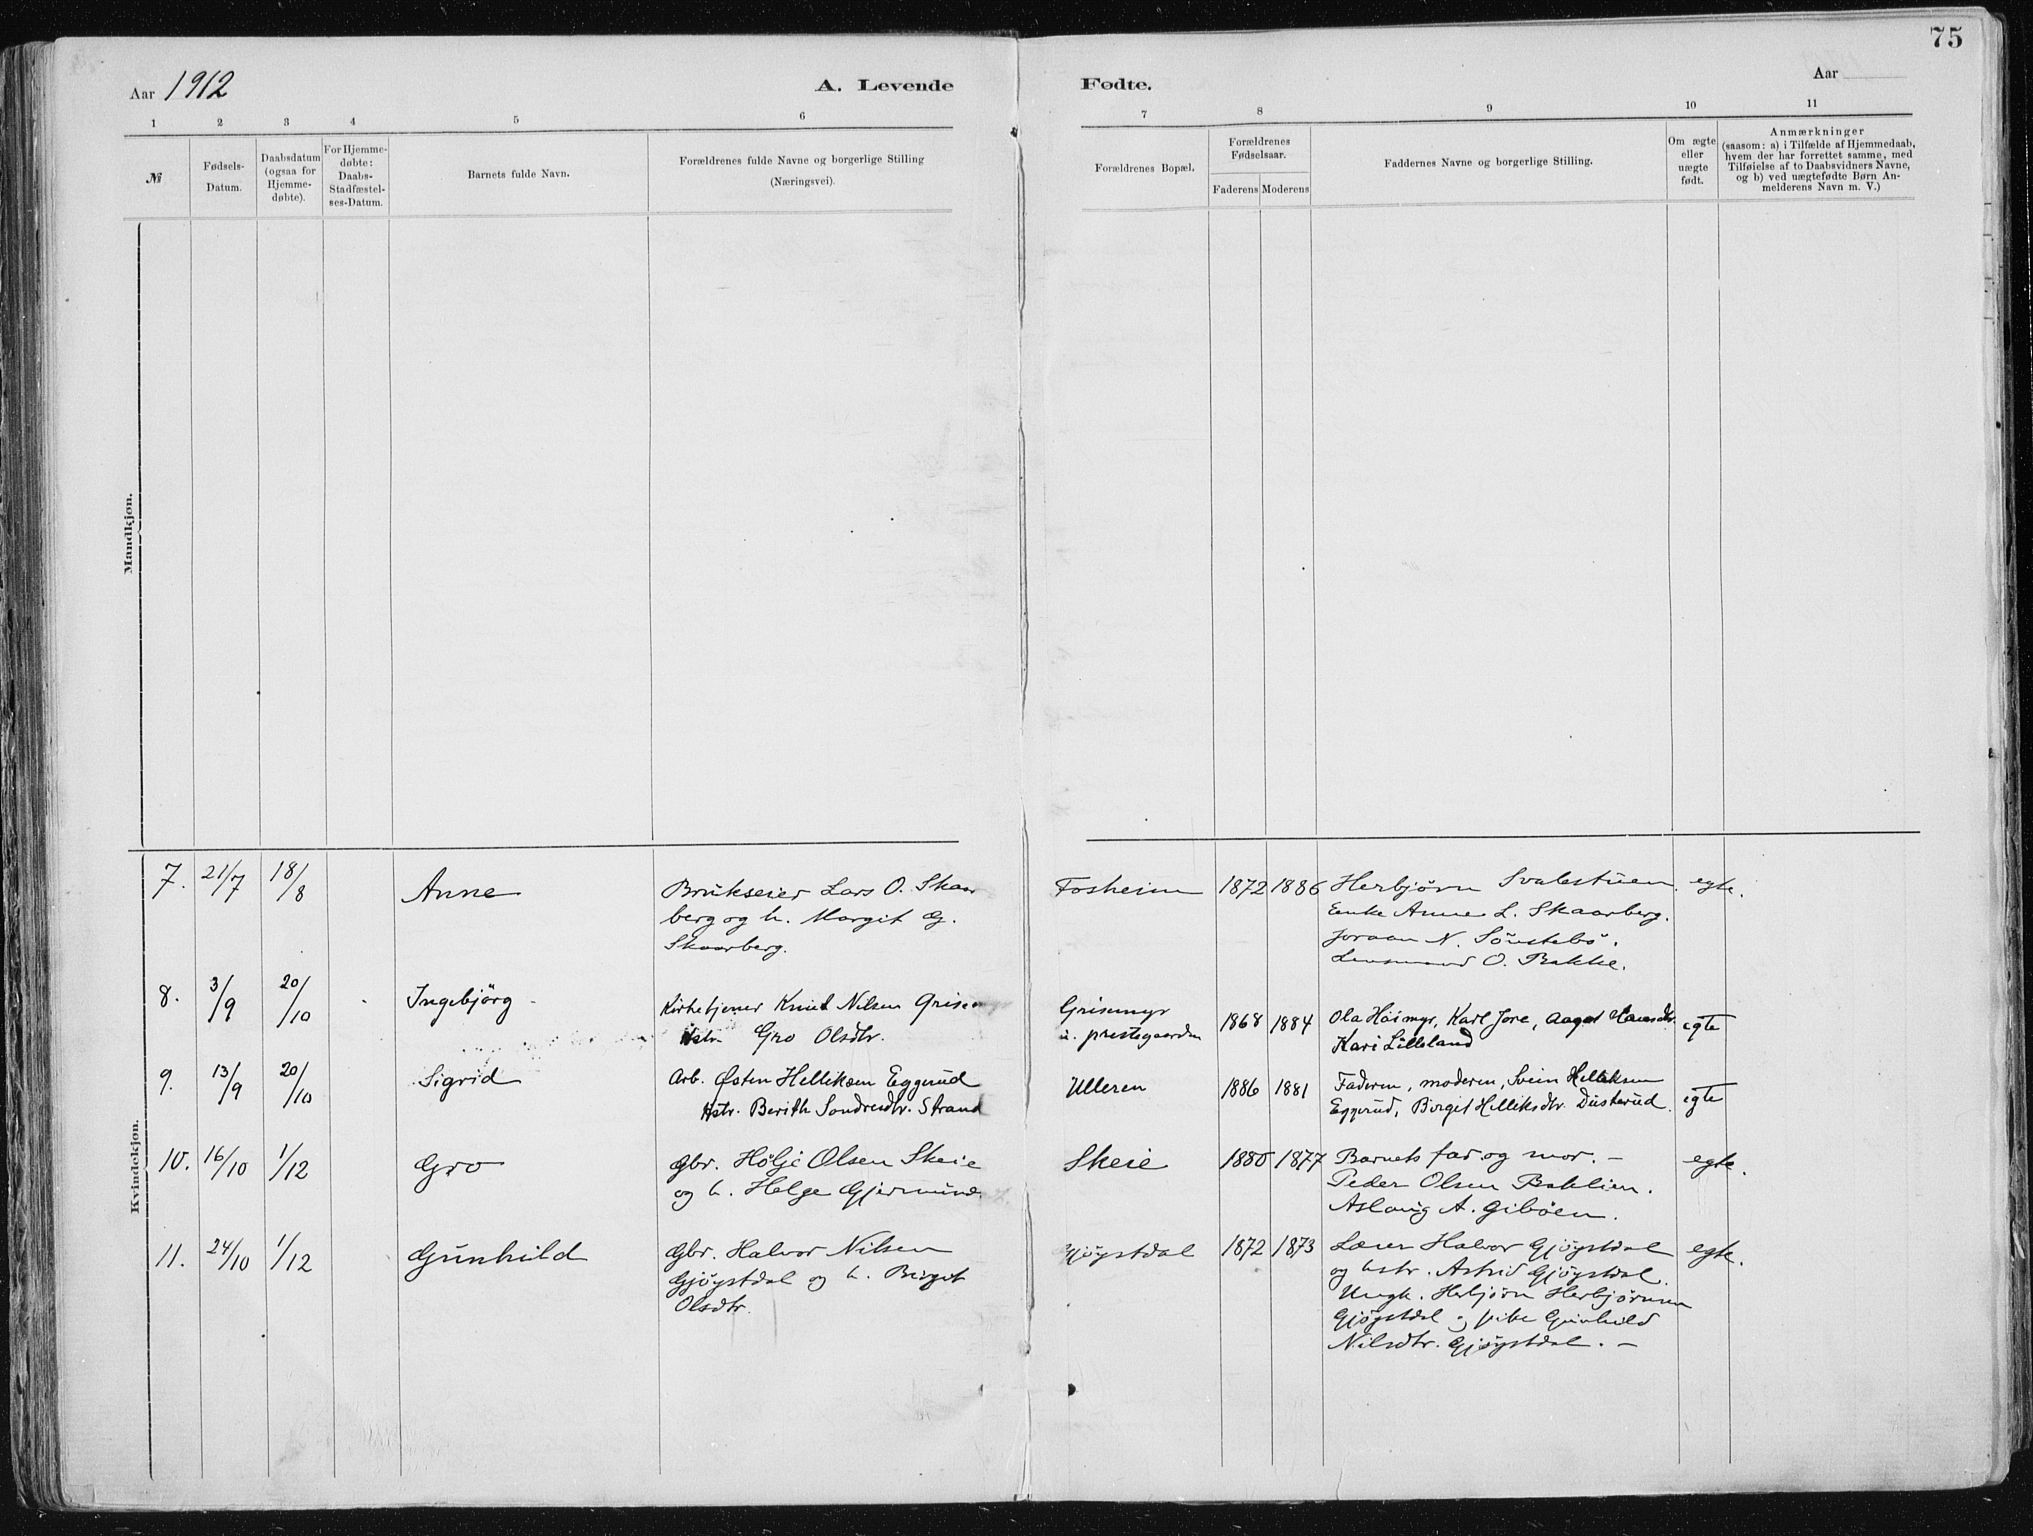 75
Aar 1912
A. Levende Fødte.
Aar
1 2 3 4 5 6 7 8 9 10 11
№
Fødsels-
Datum.
Daabsdatum
(ogsaa for
Hjemme-
døbte).
For Hjemme-
døbte:
Daabs-
Stadfæstel-
ses-Datum.
Barnets fulde Navn.
Forældrenes fulde Navne og borgerlige Stilling
(Næringsvei).
Forældrenes Bopæl.
Forældrenes
Fødselsaar.
Faderens Moderens
Faddernes Navne og borgerlige Stilling.
Om ægte
eller
uægte
født.
Anmærkninger
(saasom: a) i Tilfælde af Hjemmedaab,
hvem der har forrettet samme, med
Tilføielse af to Daabsvidners Navne,
og b) ved uægtefødte Børn An-
melderens Navn m. V.)
Mandkjøn.
Kvindekjøn.
7. 21/7 18/8 Anne
Brukseier Lars O. Skaar
berg og h. Margit G.
Skaarberg.
Fosheim 1872 1886
Herbjørn Svalestuen.
Enke Anne L. Skaarberg.
Joraan N. Sönstebö.
Lensmand O. Bakke.
egte.
8. 3/9 20/10 Ingebjörg
Kirketjener Knut Nilsen Grisem
Hstr. Gro Olsdtr.
Grisemyr
u. prestegaarden
1868 1884
Ola Höimyr, Karl Jore, Aagot Hansdtr.
Kari Lilleland
egte
9. 13/9 20/10 Sigrid
Arb. Østen Helliksen Eggerud
Hstr. Berith Sondresdtr. Strand
Ulleren 1886 1881
Faderen, moderen, Svein Helliksen
Eggerud, Birgit Helliksdtr. Dusterud.
egte
10. 16/10 1/12 Gro
Gbr. Hölje Olsen Skeie
og h. Helge Gjermunds
Skeie 1880 1877
Barnets far og mor. –
Peder Olsen Baklien.
Aslaug A. Giböen.
egte.
11. 24/10 1/12 Gunhild
Gbr. Halvor Nilsen
Gjöystdal og h. Birgit
Olsdtr.
Gjöystdal 1872 1873
Lærer Halvor Gjöystdal
og hstr. Astrid Gjöystdal.
Ungk. Herbjörn Herbjörnsen
Gjöystdal og pike Gunhild
Nilsdtr. Gjöystdal. –
egte.